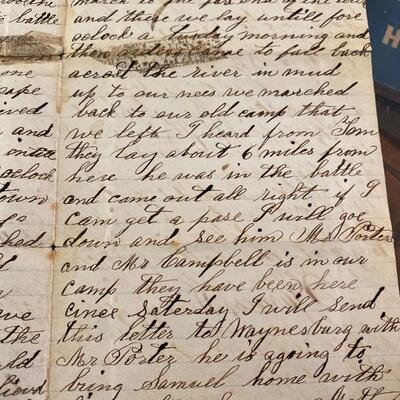 battle
one
cape
ived
and
oclock
town
hed
ve
the
rld
and there we lay untill fore
oclock a tusday morning and
then orders came to fall back
across the river in mud
up to our nees we marched
back to our old camp that
we left I heard from Tom
they lay about 6 miles from
here he was in the battle
and came out all right if I
cam get a pase I will goe
down and see him Mr Porter
and Mr Campbell is in our
camp they have been here
cince saterday I will send
this letter to Waynesburg with
Mr Porter he is agoing to
bring Samuel home with
H